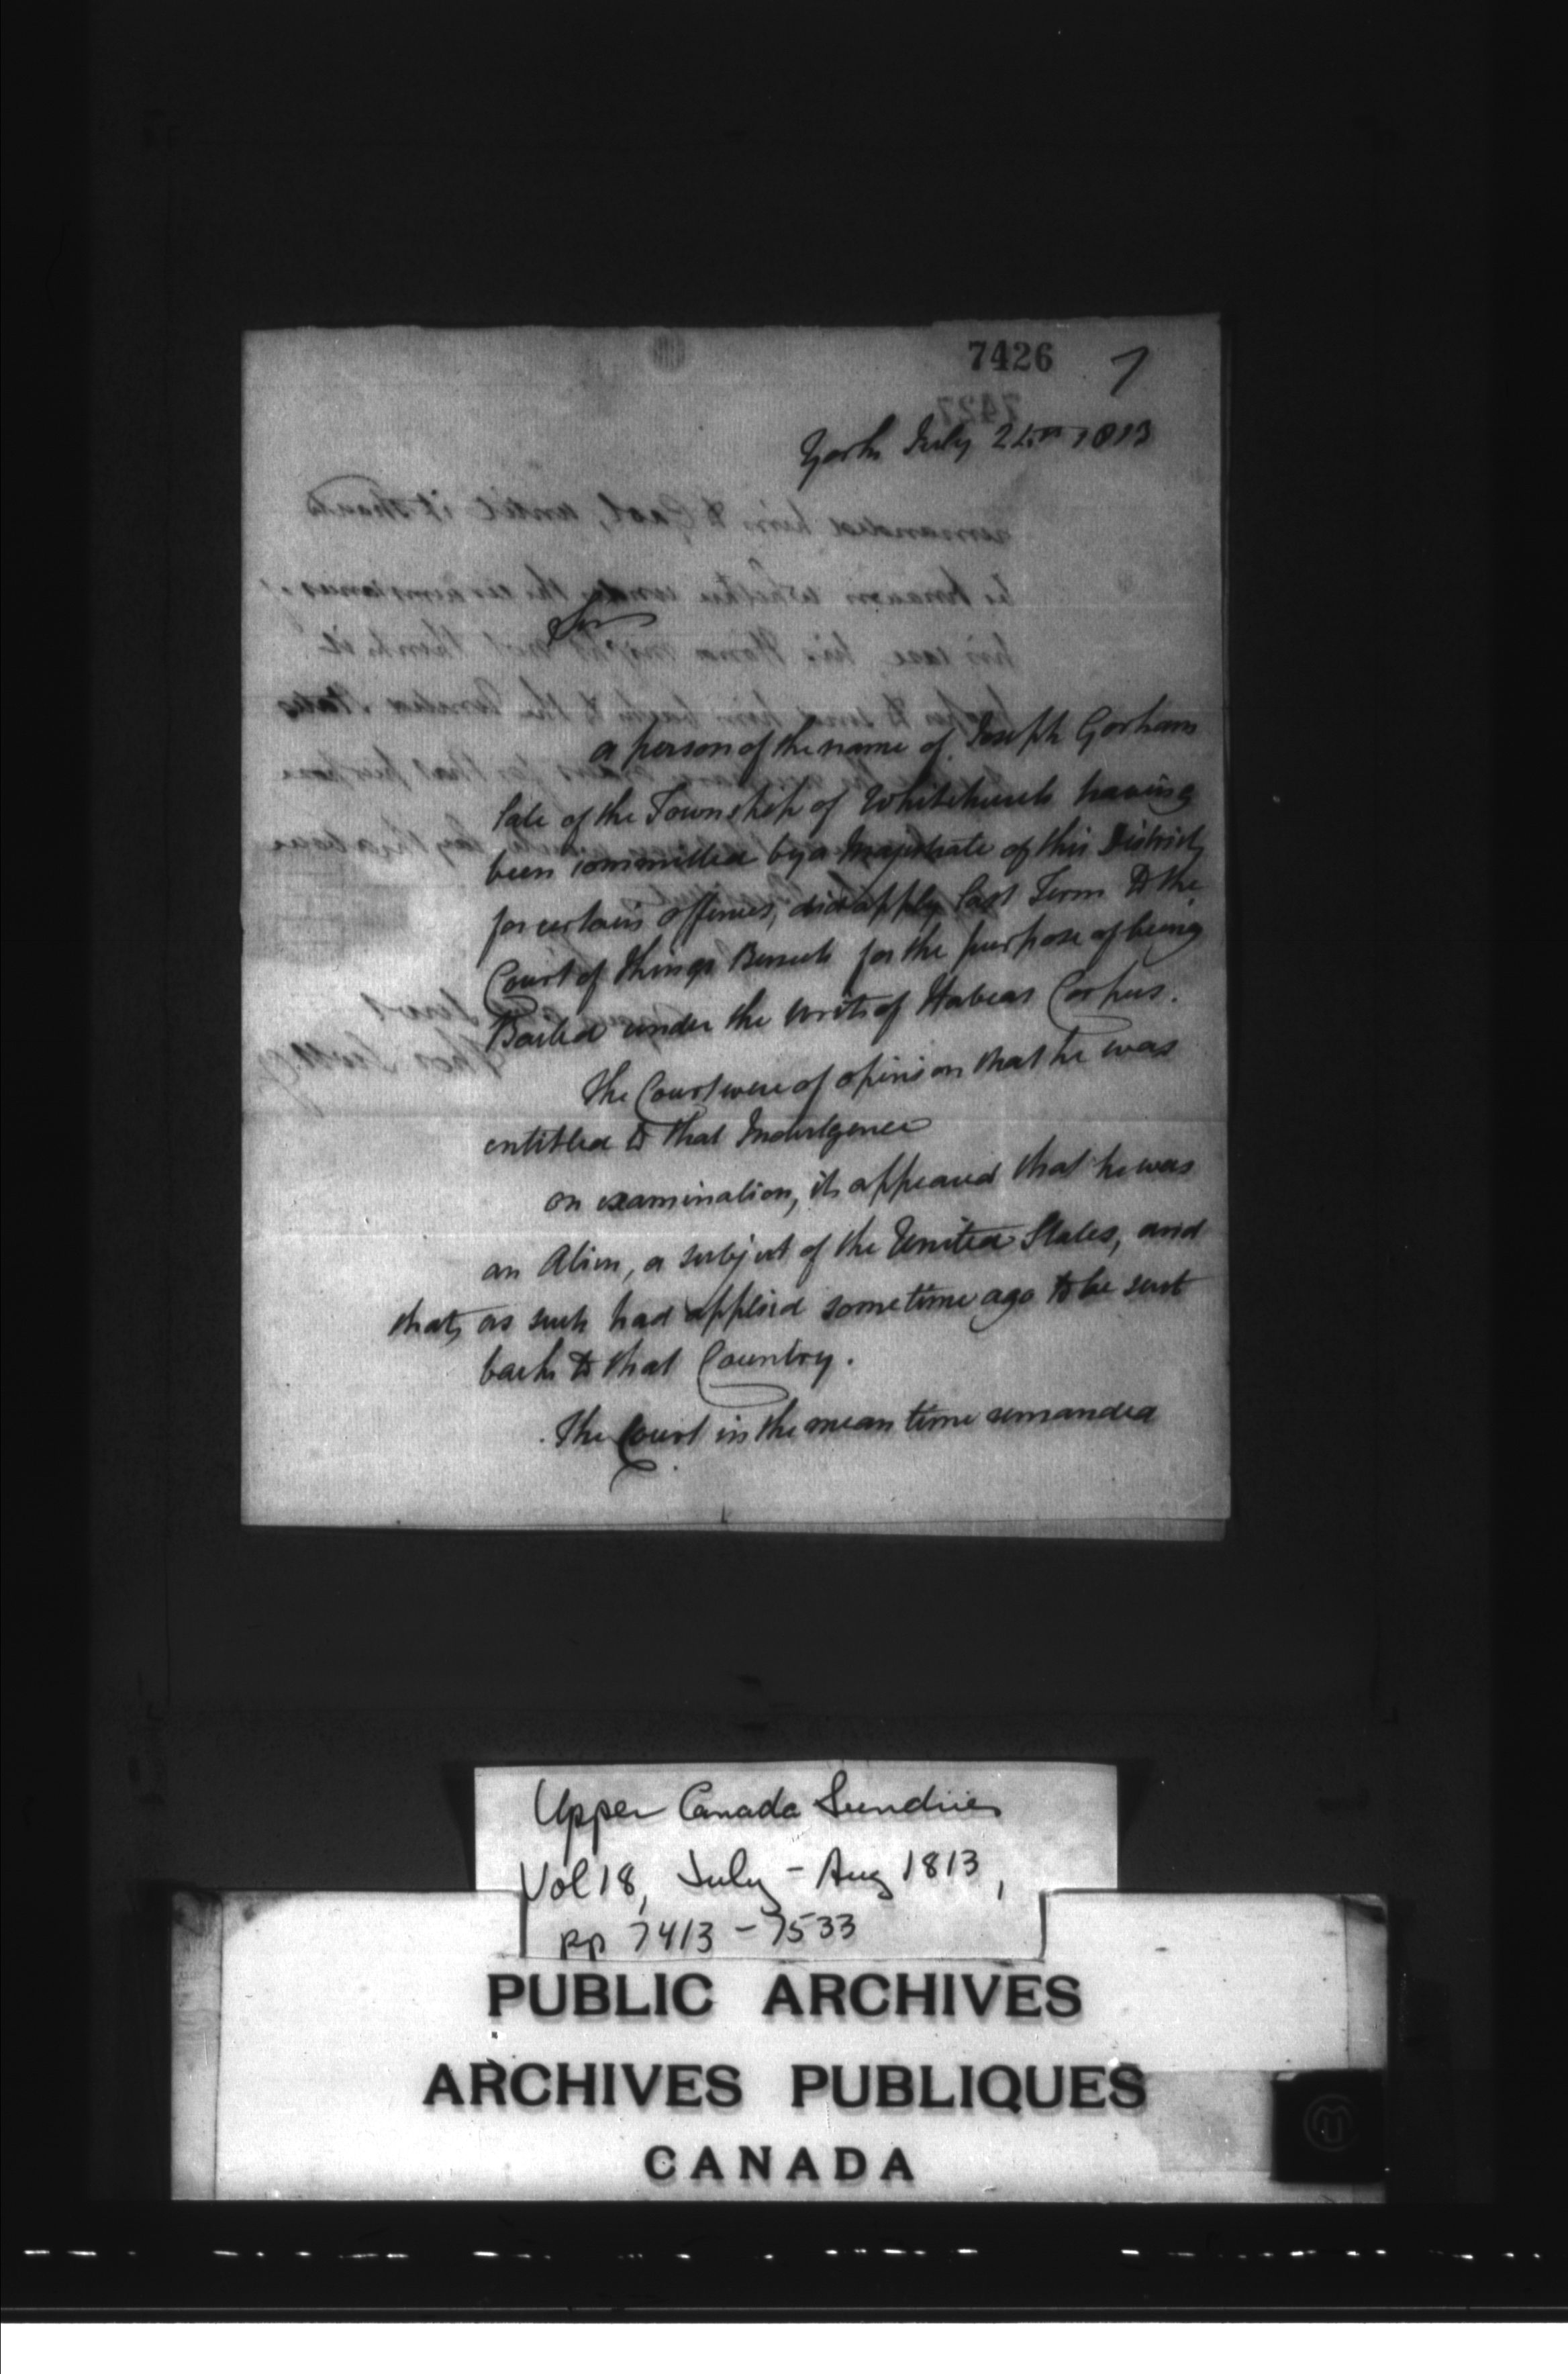 7426 7
York July 24th 1813
Sir
a person of the name of Joseph Gorham
late of the Township of Whitchurch having
been committed by a Magistrate of this District
for certain offences, did apply last Term to the
Court of Kings Bench for the purpose of being
Bailed under the writ of Habeas Corpus.
The Court were of opinion that he was
entitled to that Indulgence
on examination, it appeared that he was
an Alien, a subject of the United States, and
that, as such had applied sometime ago to be sent
back to that Country.
The Court in the mean time remanded
Upper Canada Sundries
Vol 18, July - Aug 1813,
pp 7413 - 7533
PUBLIC ARCHIVES
ARCHIVES PUBLIQUES
CANADA